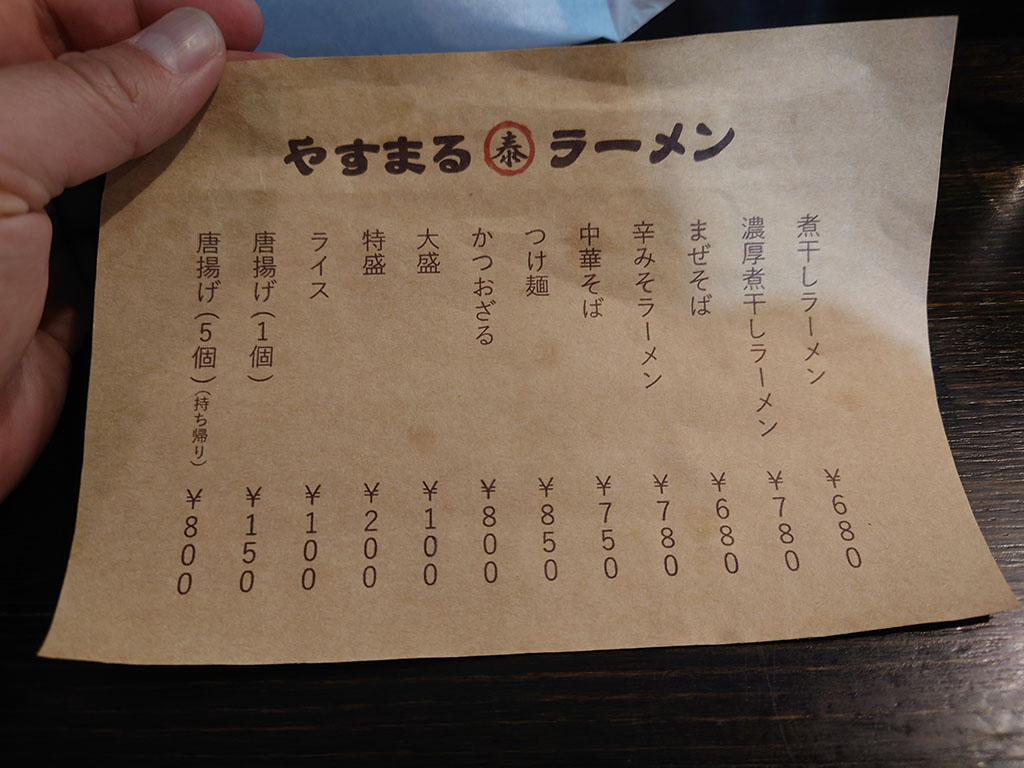 やすまる 泰 ラーメン
煮干しラーメン ¥680
濃厚煮干しラーメン ¥780
まぜそば ¥680
辛みそラーメン ¥780
中華そば ¥750
つけ麺 ¥850
かつおざる ¥800
大盛 ¥100
特盛 ¥200
ライス ¥100
唐揚げ(1個) ¥150
唐揚げ(5個)(持ち帰り) ¥800